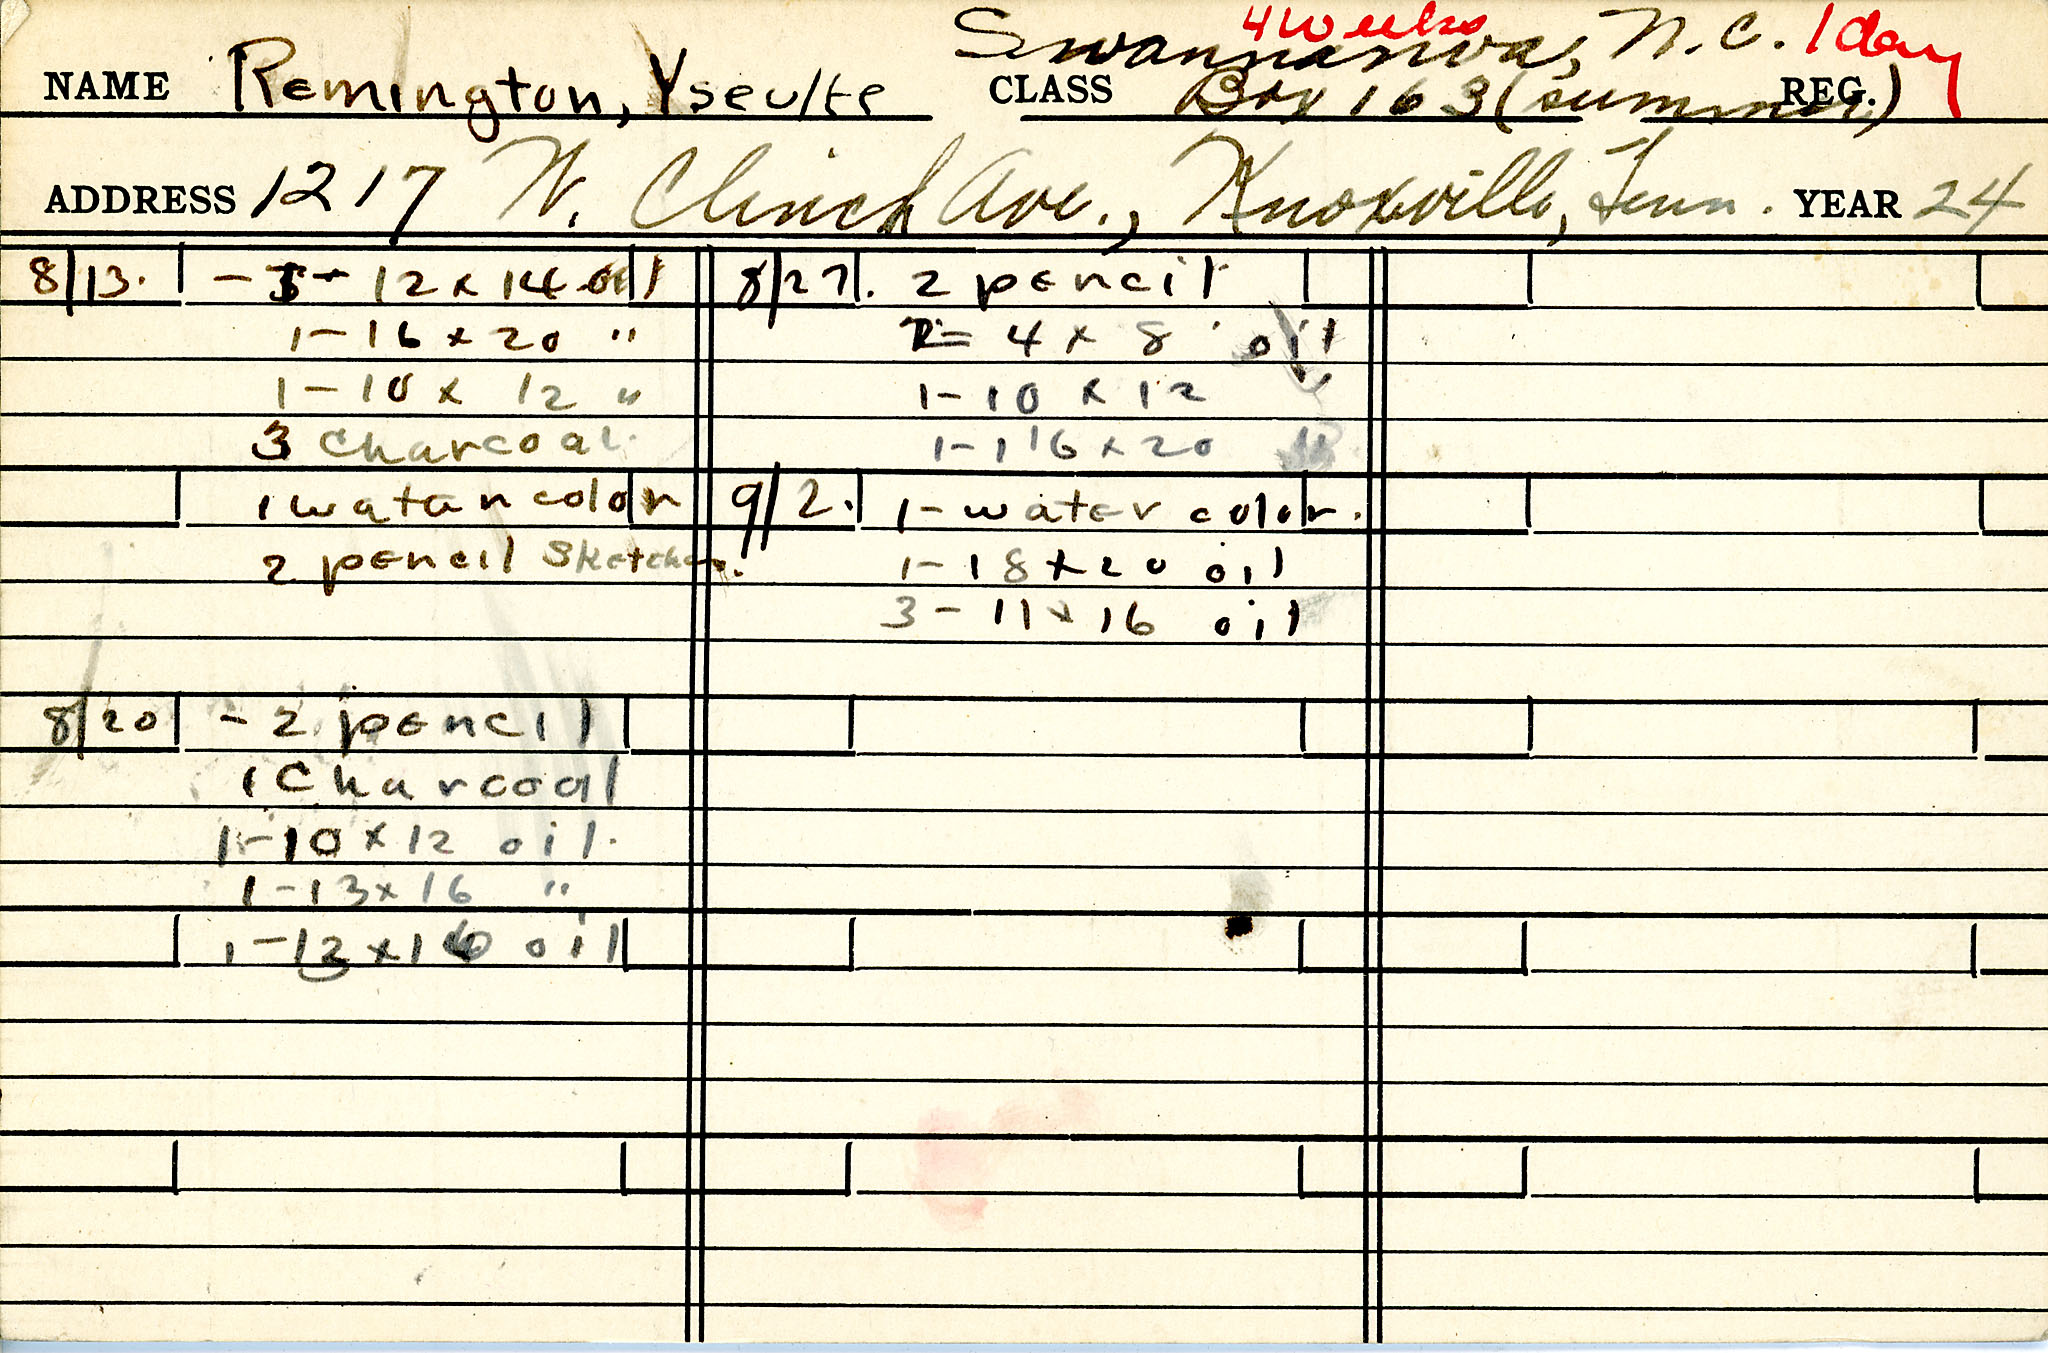 4 weeks 1 day
Swannanoa, N.C.
NAME Remington, Yseulte CLASS Box 163 (summer) REG.
ADDRESS 1217 W. Clinch Ave., Knoxville, Tenn. YEAR 24
8/13. - 12 x 14 oil
1 - 16 x 20 "
1 - 10 x 12 "
3 Charcoal.
1 watercolor
2 pencil sketches.
8/20 - 2 pencil
1 Charcoal
1 - 10 x 12 oil.
1 - 13 x 16 "
1 - 12 x 16 oil
8/27. 2 pencil
4 x 8 oil
1 - 10 x 12 "
1 - 16 x 20
9/2. 1 - water color.
1 - 18 x 20 oil
3 - 11 x 16 oil